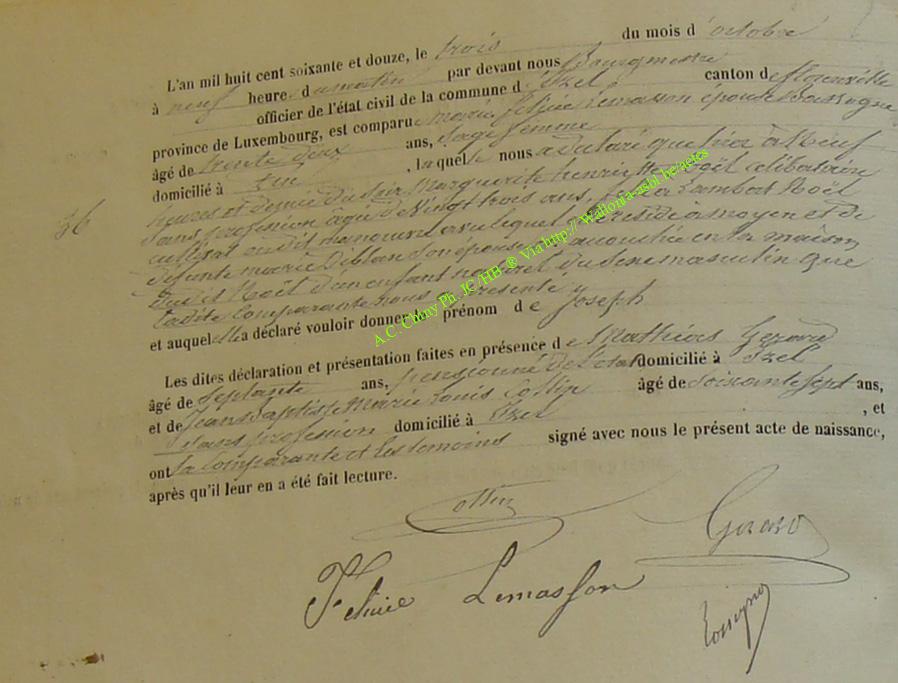 L'an mil huit cent soixante et douze, le trois du mois d'octobre
à neuf heure du matin par devant nous Bourgmestre
officier de l'état civil de la commune d'Izel canton de florenville
province de Luxembourg, est comparue marie félicie Lemasson épouse
âgé de trente deux ans, Sage femme
domicilié à Izel, laquelle nous a déclaré que hier à Neuf
36
heures et demie du soir Marguerite henriette Noël célibataire
Sans profession agée de Vingt trois ans, Lambert Noël
cultivateur et de
défunte marie son épouse est accouchée en la maison
dudit Noël d'un enfant naturel du Sexe masculin que
Ladite Comparante nous a présenté
et auquel elle a déclaré vouloir donner le prénom de Joseph
Les dites déclaration et présentation faites en présence de Mathias Gerard
âgé de Septante ans, pensionné de l'état domicilié à Izel
et de Jean Baptiste Marie Louis Collin âgé de Soixante Sept ans,
Sans profession domicilié à Izel, et
ont la Comparante et les temoins signé avec nous le présent acte de naissance,
après qu'il leur en a été fait lecture.
Collin
Gerard
Felicie Lemasson
A.C. Chiny Ph. JC/HB ® Via http://Wallonia-asbl.be/actes